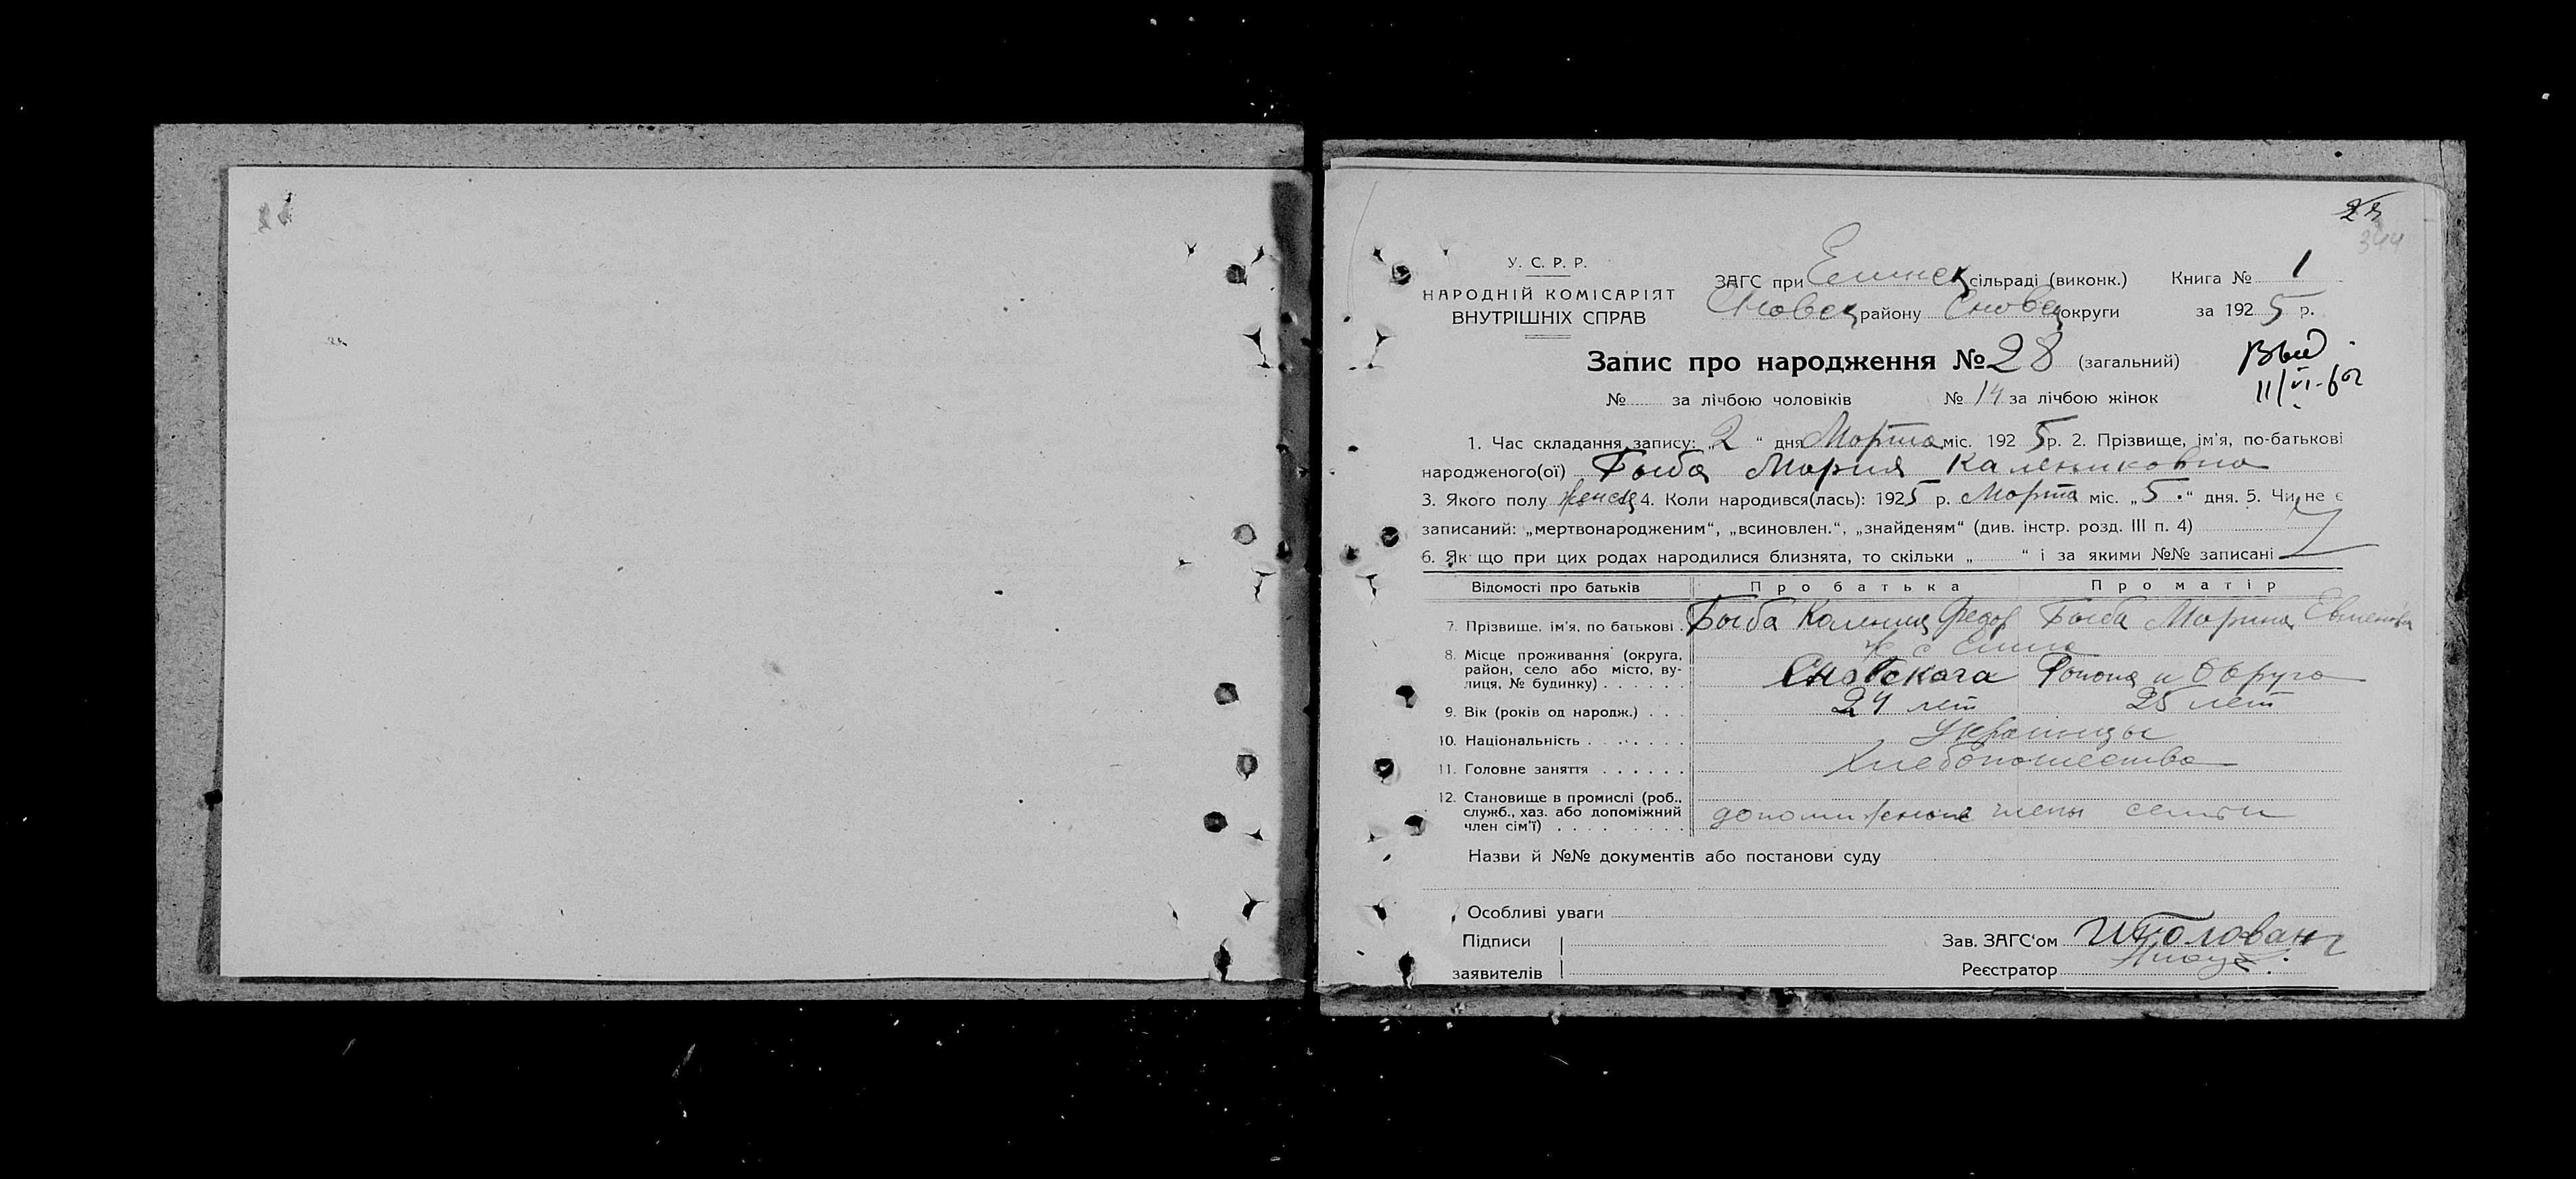 28
344
У. С. Р. Р.
НАРОДНІЙ КОМІСАРІЯТ
ВНУТРІШНІХ СПРАВ
ЗАГС при Елинск сільраді (виконк.) Книга № 1
Сновск району Сновск округи за 1925 р.
Запис про народження № 28 (загальний)
№ за лічбою чоловіків № 14 за лічбою жінок
11/VI-62
1. Час складання запису: „2“ дня Марта міс. 1925 р. 2. Прізвище, ім'я, по-батькові
народженого(ої) Быба Мария Калениковна
3. Якого полу женск 4. Коли народився(лась): 1925 р. Марта міс. „5“ дня. 5. Чи не є
записаний: „мертвонародженим“, „всиновлен.“, „знайденям“ (див. інстр. розд. III п. 4)
6. Як що при цих родах народилися близнята, то скільки „ “ і за якими №№ записані
Відомості про батьків Про батька Про матір
7. Прізвище, ім'я, по батькові Быба Каленик Федор Быба Марина Евменова
8. Місце проживання (округа, район, село або місто, вулиця, № будинку) с Елино
Сновского Района и Округа
9. Вік (років од народж.) 24 лет 25 лет
10. Національність Украинцы
11. Головне заняття Хлебопашество
12. Становище в промислі (роб., служб., хаз. або допоміжний член сім'ї) допоми жные члены семьи
Назви й №№ документів або постанови суду
Особливі уваги
Підписи
заявителів
Зав. ЗАГС'ом
Реєстратор